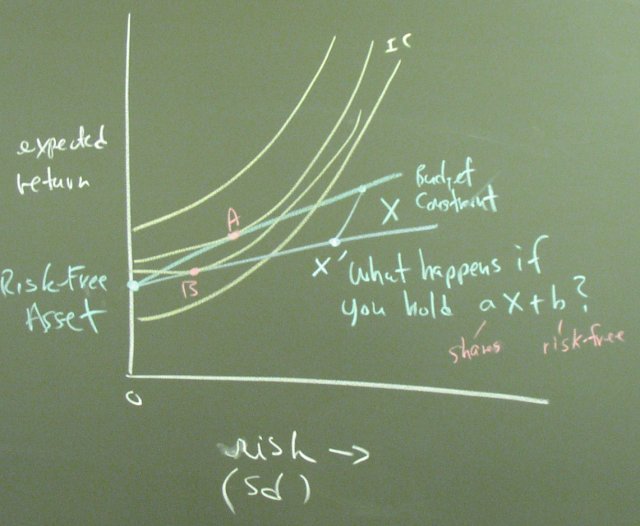 IC
expected
return
A
Budget
Constraint
X
Risk-Free
Asset
B
X'
What happens if
you hold aX+b?
shares
risk-free
0
risk →
(sd)